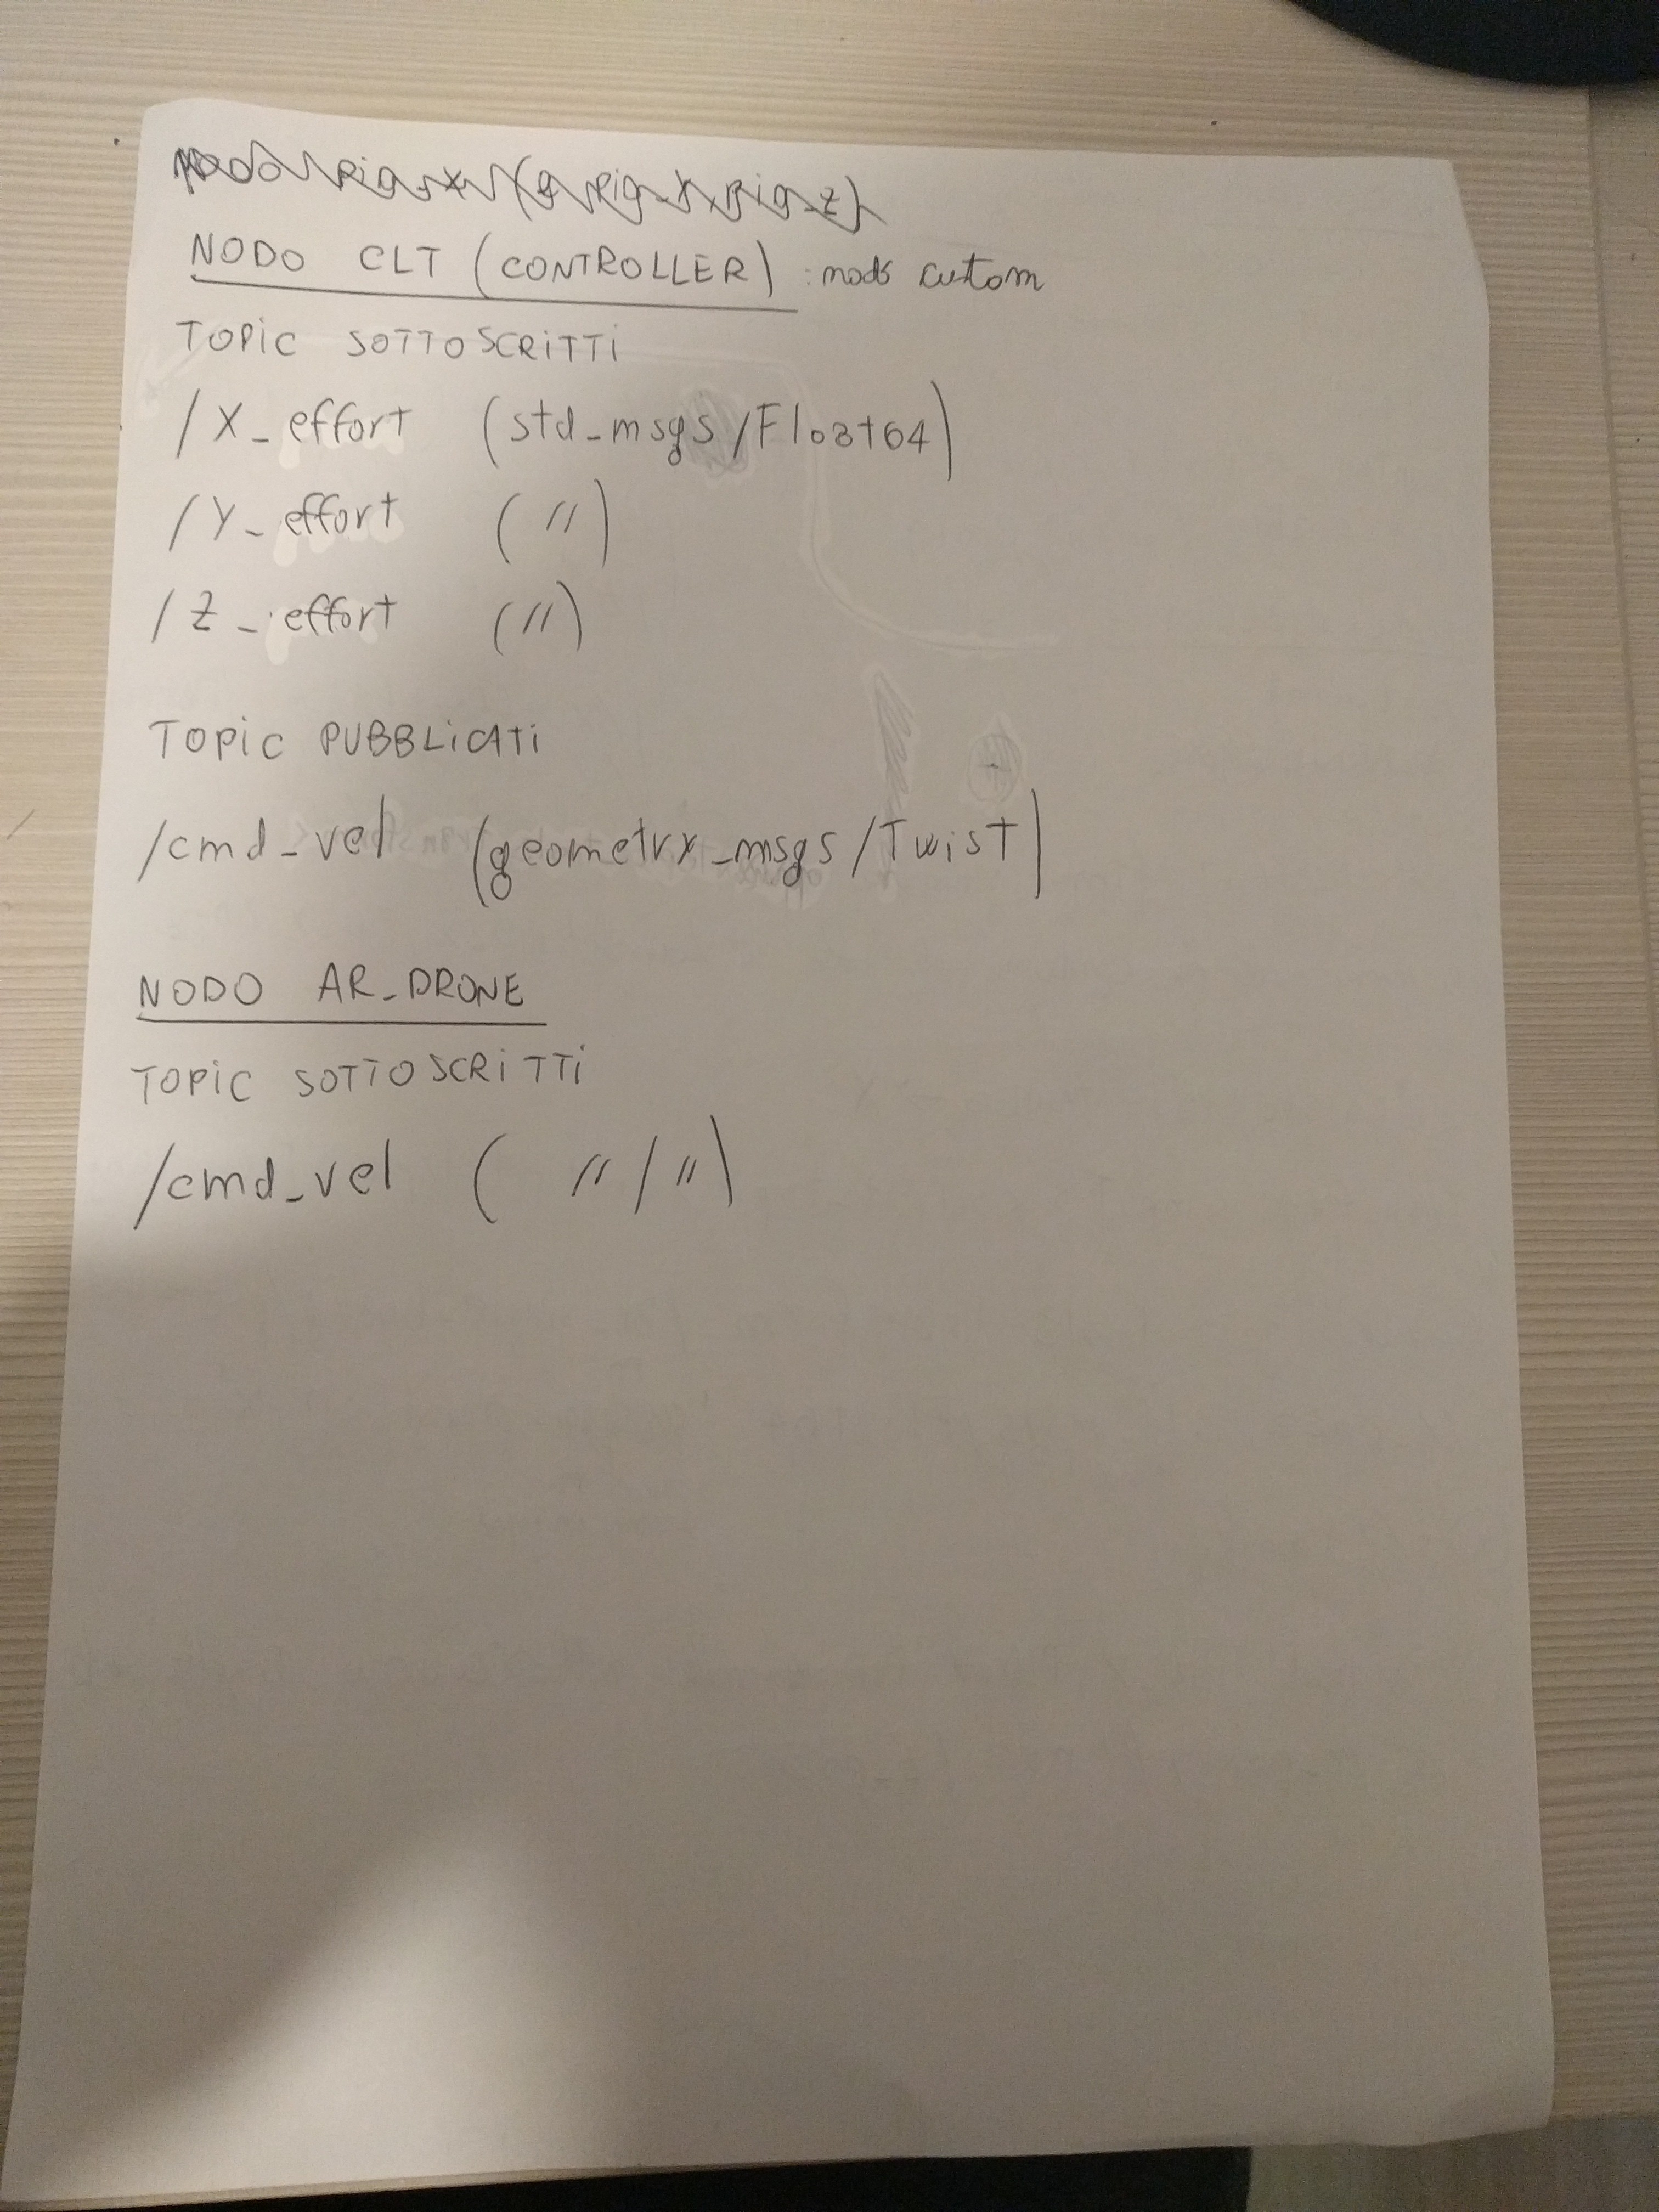 NODO CLT (CONTROLLER) : nodo custom
TOPIC SOTTOSCRITTI
/X_effort (std_msgs/Float64)
/Y_effort (〃)
/Z_effort (〃)
TOPIC PUBBLICATI
/cmd_vel (geometry_msgs/Twist)
NODO AR_DRONE
TOPIC SOTTOSCRITTI
/cmd_vel ( 〃/〃)